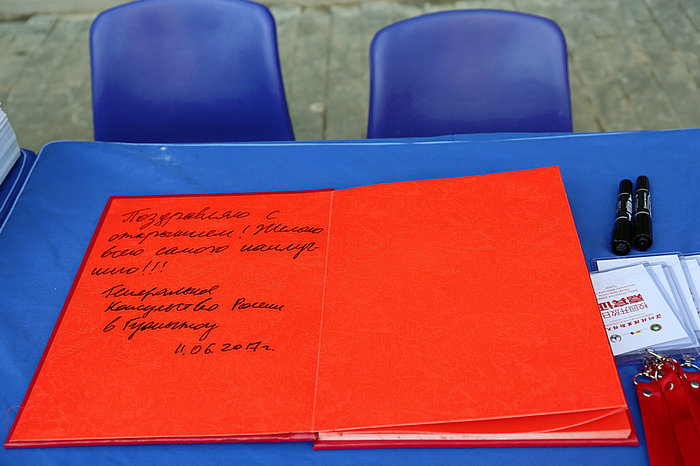 Поздравляю с
открытием! Желаю
всего самого наилуч-
шего!!!
Генеральное
Консульство России
в Гуанчжоу
11.06.2017г.
校园开放日
嘉宾证